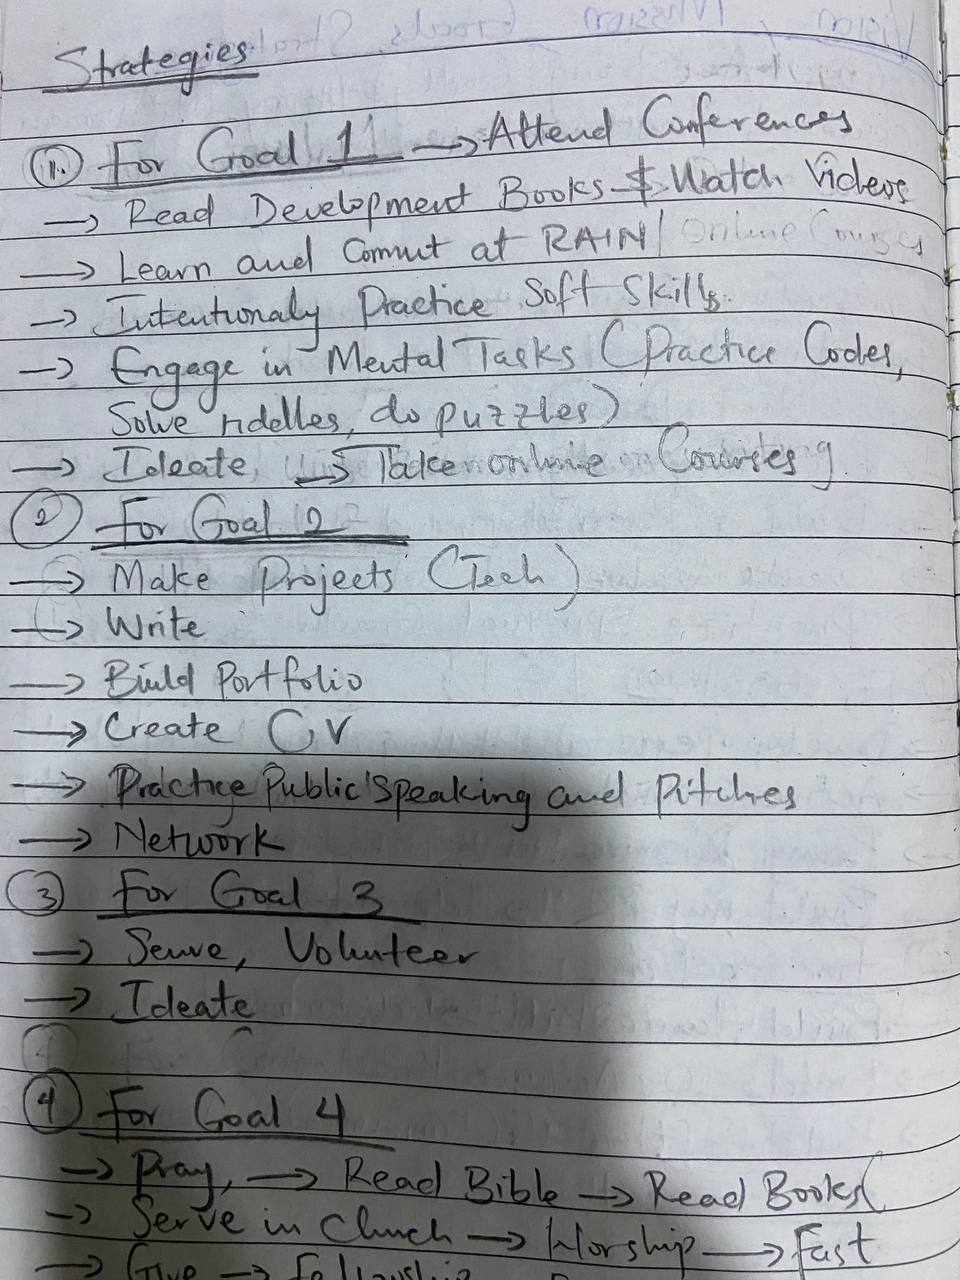 Strategies
1. For Goal 1 → Attend Conferences
→ Read Development Books & Watch Videos
→ Learn and Commit at RAIN / Online Courses
→ Intentionaly Practice Soft Skills.
→ Engage in Mental Tasks (Practice Codes,
Solve riddles, do puzzles)
→ Ideate → Take online Courses
2 For Goal 2
→ Make Projects (Tech)
→ Write
→ Build Portfolio
→ Create CV
→ Practice Public Speaking and Pitches
→ Network
3 For Goal 3
→ Serve, Volunteer
→ Ideate
4 For Goal 4
→ Pray, → Read Bible → Read Books
→ Serve in Church → Worship → Fast
→ Give → Fellowship